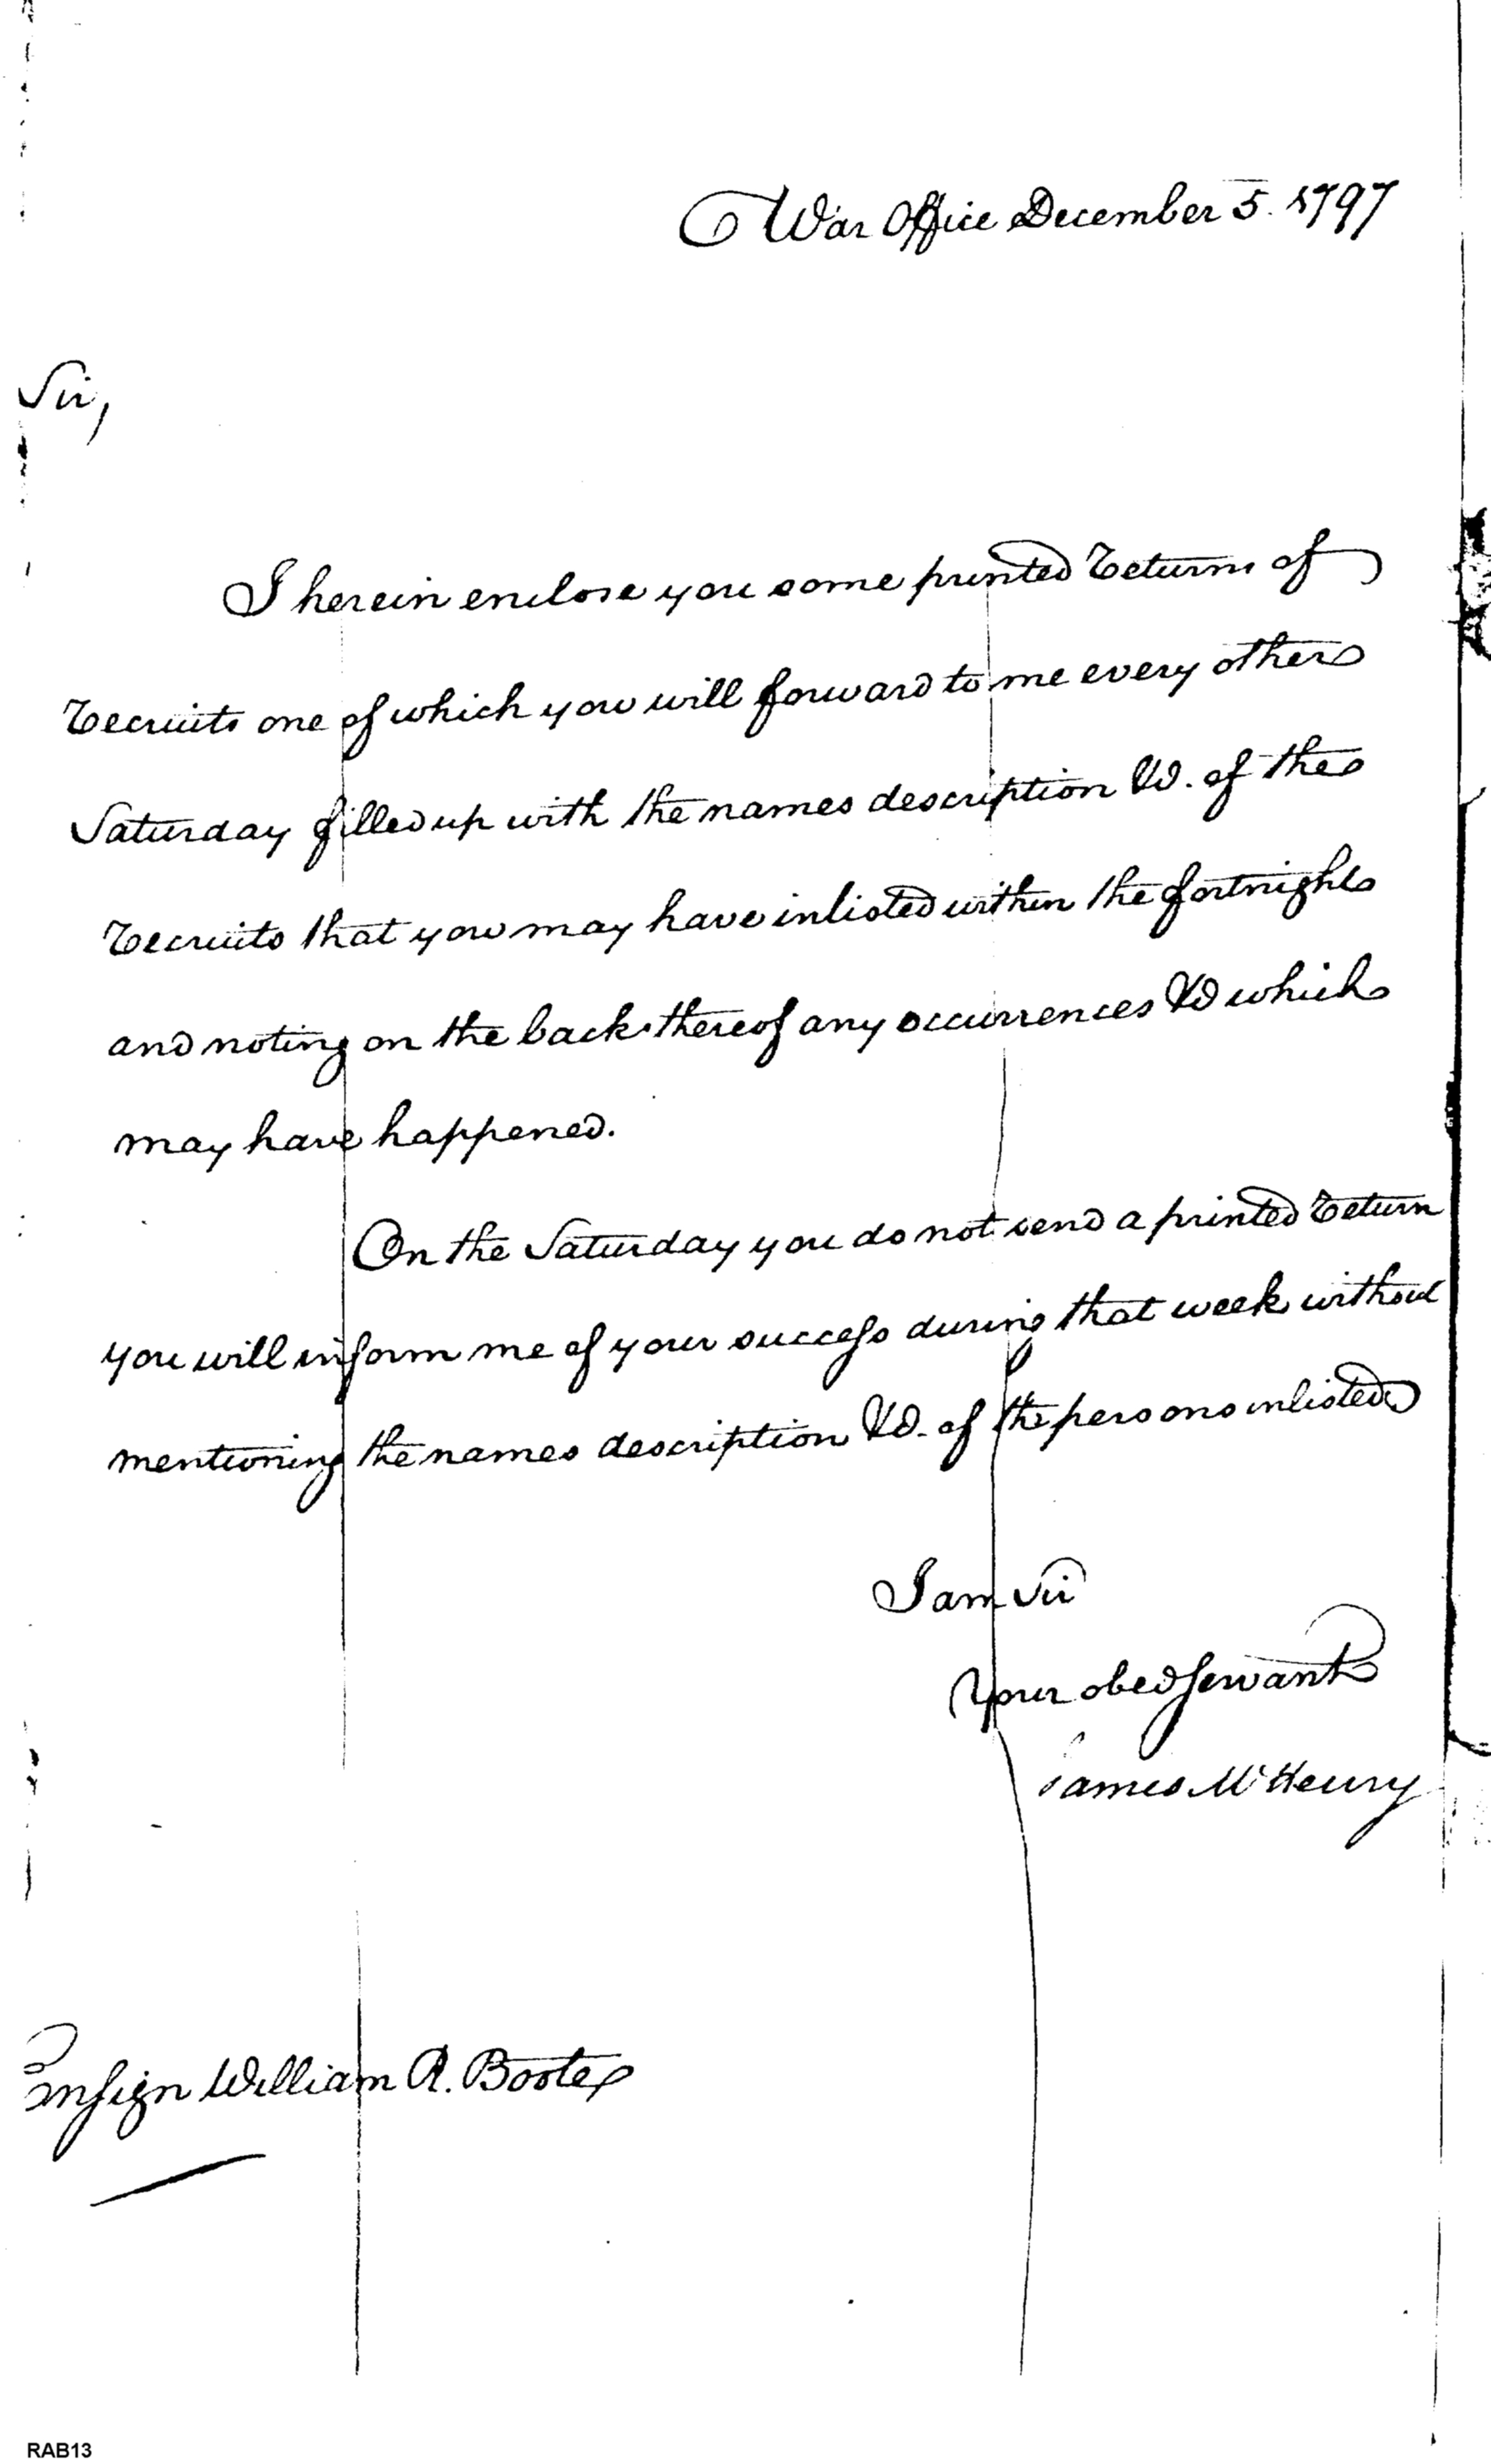 War Office December 5. 1797
Sir,
I herein enclose you some printed returns of
recruits one of which you will forward to me every other
Saturday filled up with the names description &c. of the
recruits that you may have inlisted within the fortnight
and noting on the back thereof any occurrences &c which
may have happened.
On the Saturday you do not send a printed return
you will inform me of your success during that week without
mentioning the names description &c. of the persons inlisted
I am Sir
Your obed servant
James McHenry
Ensign William R. Boote
RAB13